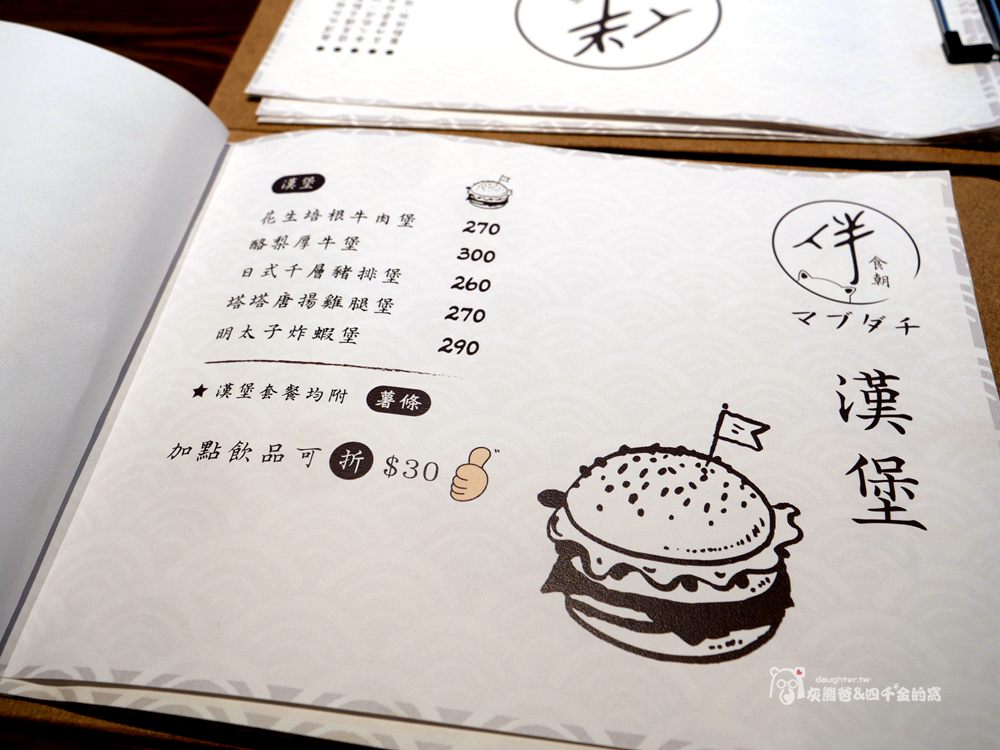 漢堡
花生培根牛肉堡 270
酪梨厚牛堡 300
日式千層豬排堡 260
塔塔唐揚雞腿堡 270
明太子炸蝦堡 290
★漢堡套餐均附 薯條
加點飲品可折 $30
伴
食朝
マブダチ
漢堡
daughter.tw
灰熊爸&四千金的窩